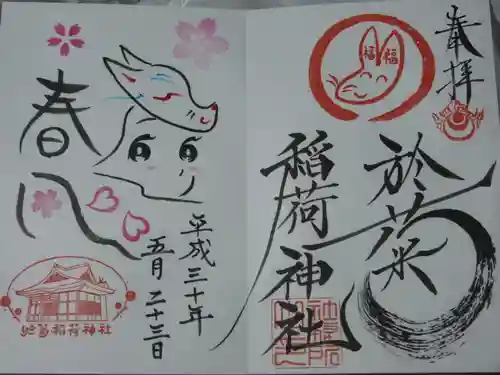 奉拝
福 福
於菜
稲荷神社
春
平成三十年
五月二十三日
稲荷神社